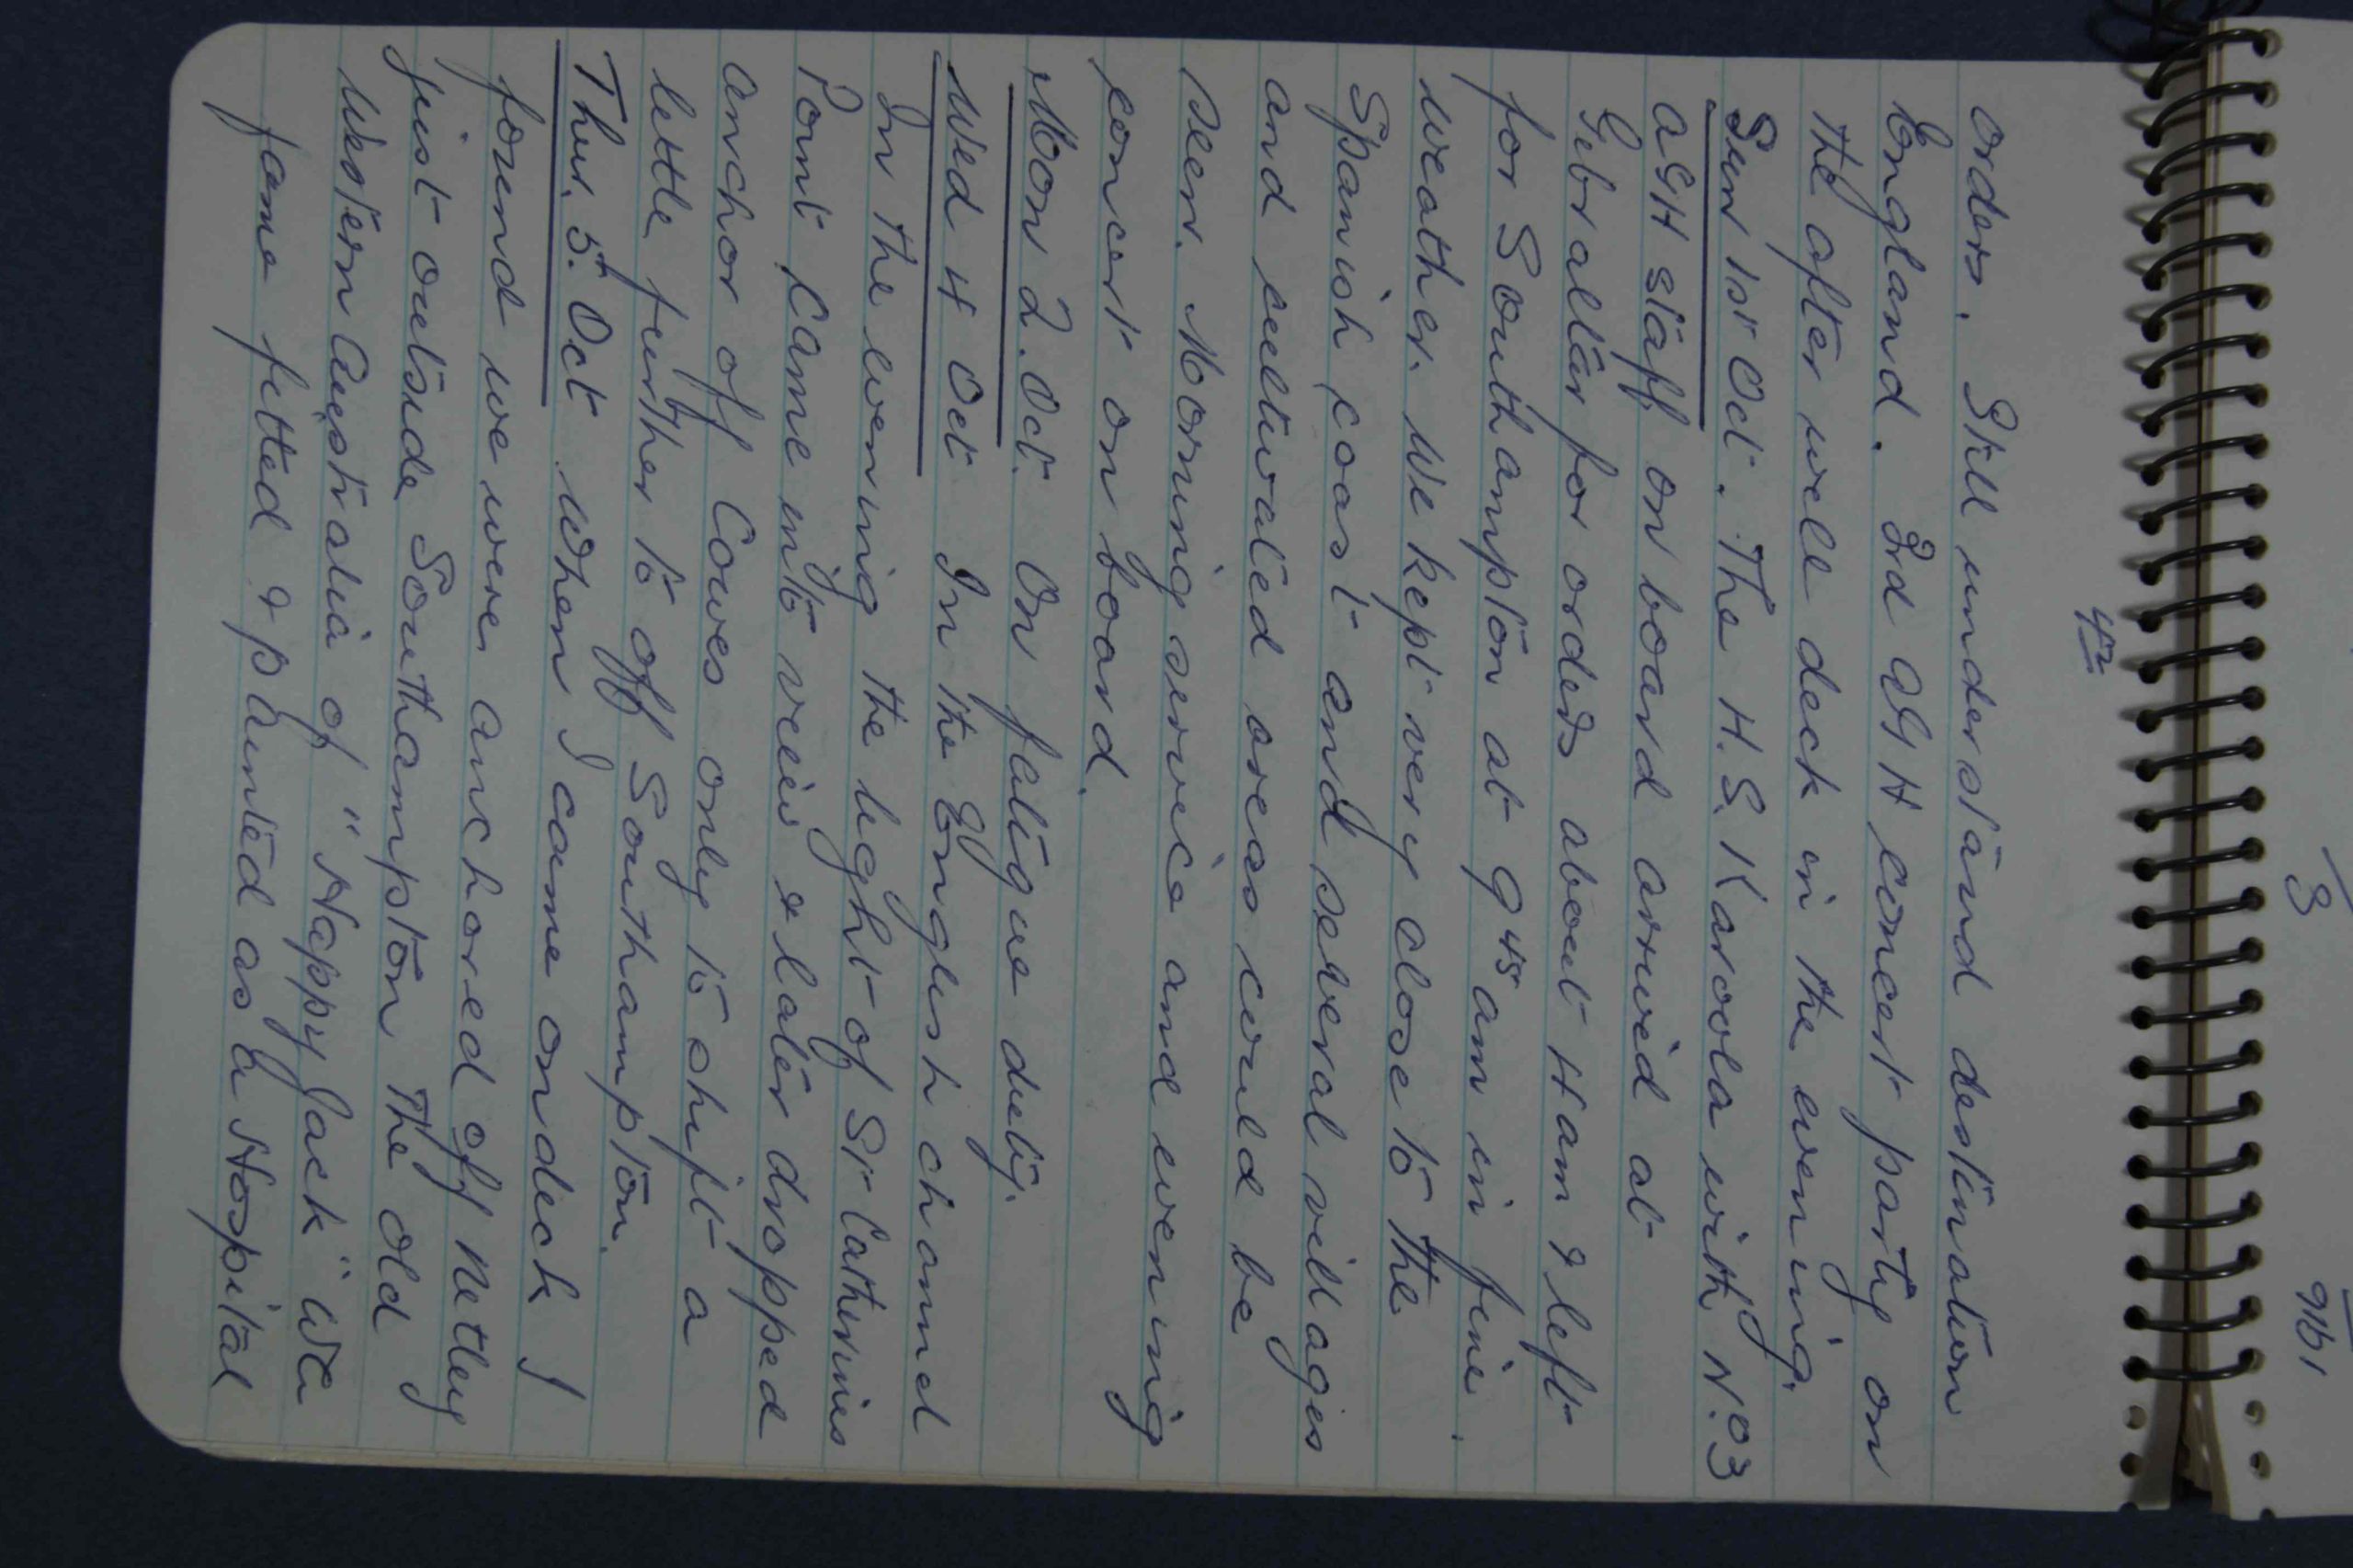 42
orders. Still understand destination
England. 3rd AGH concert party on
the after well deck in the evening.
Sun 1st Oct. The H.S. Karoola with No 3
AGH staff on board arrived at
Gibraltar for orders about 4 am & left
for Southampton at 9 45 am in fine
weather. We kept very close to the
Spanish coast and several villages
and cultivated areas could be
seen. Morning service and evening
concert on board.
Mon 2. Oct. On fatigue duty.
Wed 4 Oct In the English channel
In the evening the light of St Catherines
Point came into view & later dropped
anchor off Cowes only to shift a
little further to off Southampton.
Thur. 5th Oct When I came on deck I
found we were anchored off Netley
just outside Southampton The old
Western Australia of "Happy Jack" WA
fame fitted & painted as a Hospital
3
1916